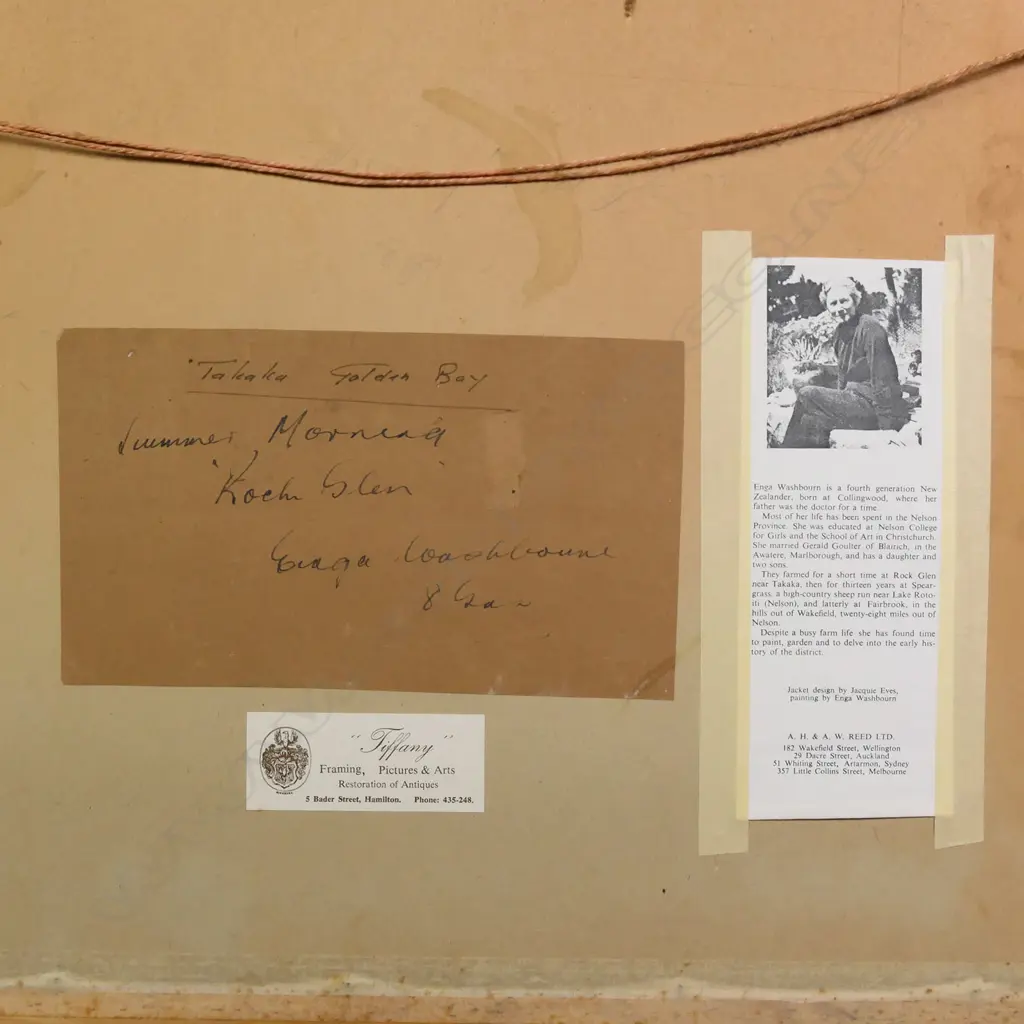 "Takaka Golden Bay
Summer Morning
"Rock Glen
Enga Washbourne
8 Gns
"Tiffany"
Framing, Pictures & Arts
Restoration of Antiques
5 Bader Street, Hamilton. Phone: 435-248.
Enga Washbourn is a fourth generation New
Zealander, born at Collingwood, where her
father was the doctor for a time.
Most of her life has been spent in the Nelson
Province. She was educated at Nelson College
for Girls and the School of Art in Christchurch.
She married Gerald Goulter of Blairich, in the
Awatere, Marlborough, and has a daughter and
two sons.
They farmed for a short time at Rock Glen
near Takaka, then for thirteen years at Spear-
grass, a high-country sheep run near Lake Roto-
iti (Nelson), and latterly at Fairbrook, in the
hills out of Wakefield, twenty-eight miles out of
Nelson.
Despite a busy farm life she has found time
to paint, garden and to delve into the early his-
tory of the district.
Jacket design by Jacquie Eves,
painting by Enga Washbourn
A. H. & A. W. REED LTD.
182 Wakefield Street, Wellington
29 Dacre Street, Auckland
51 Whiting Street, Artarmon, Sydney
357 Little Collins Street, Melbourne